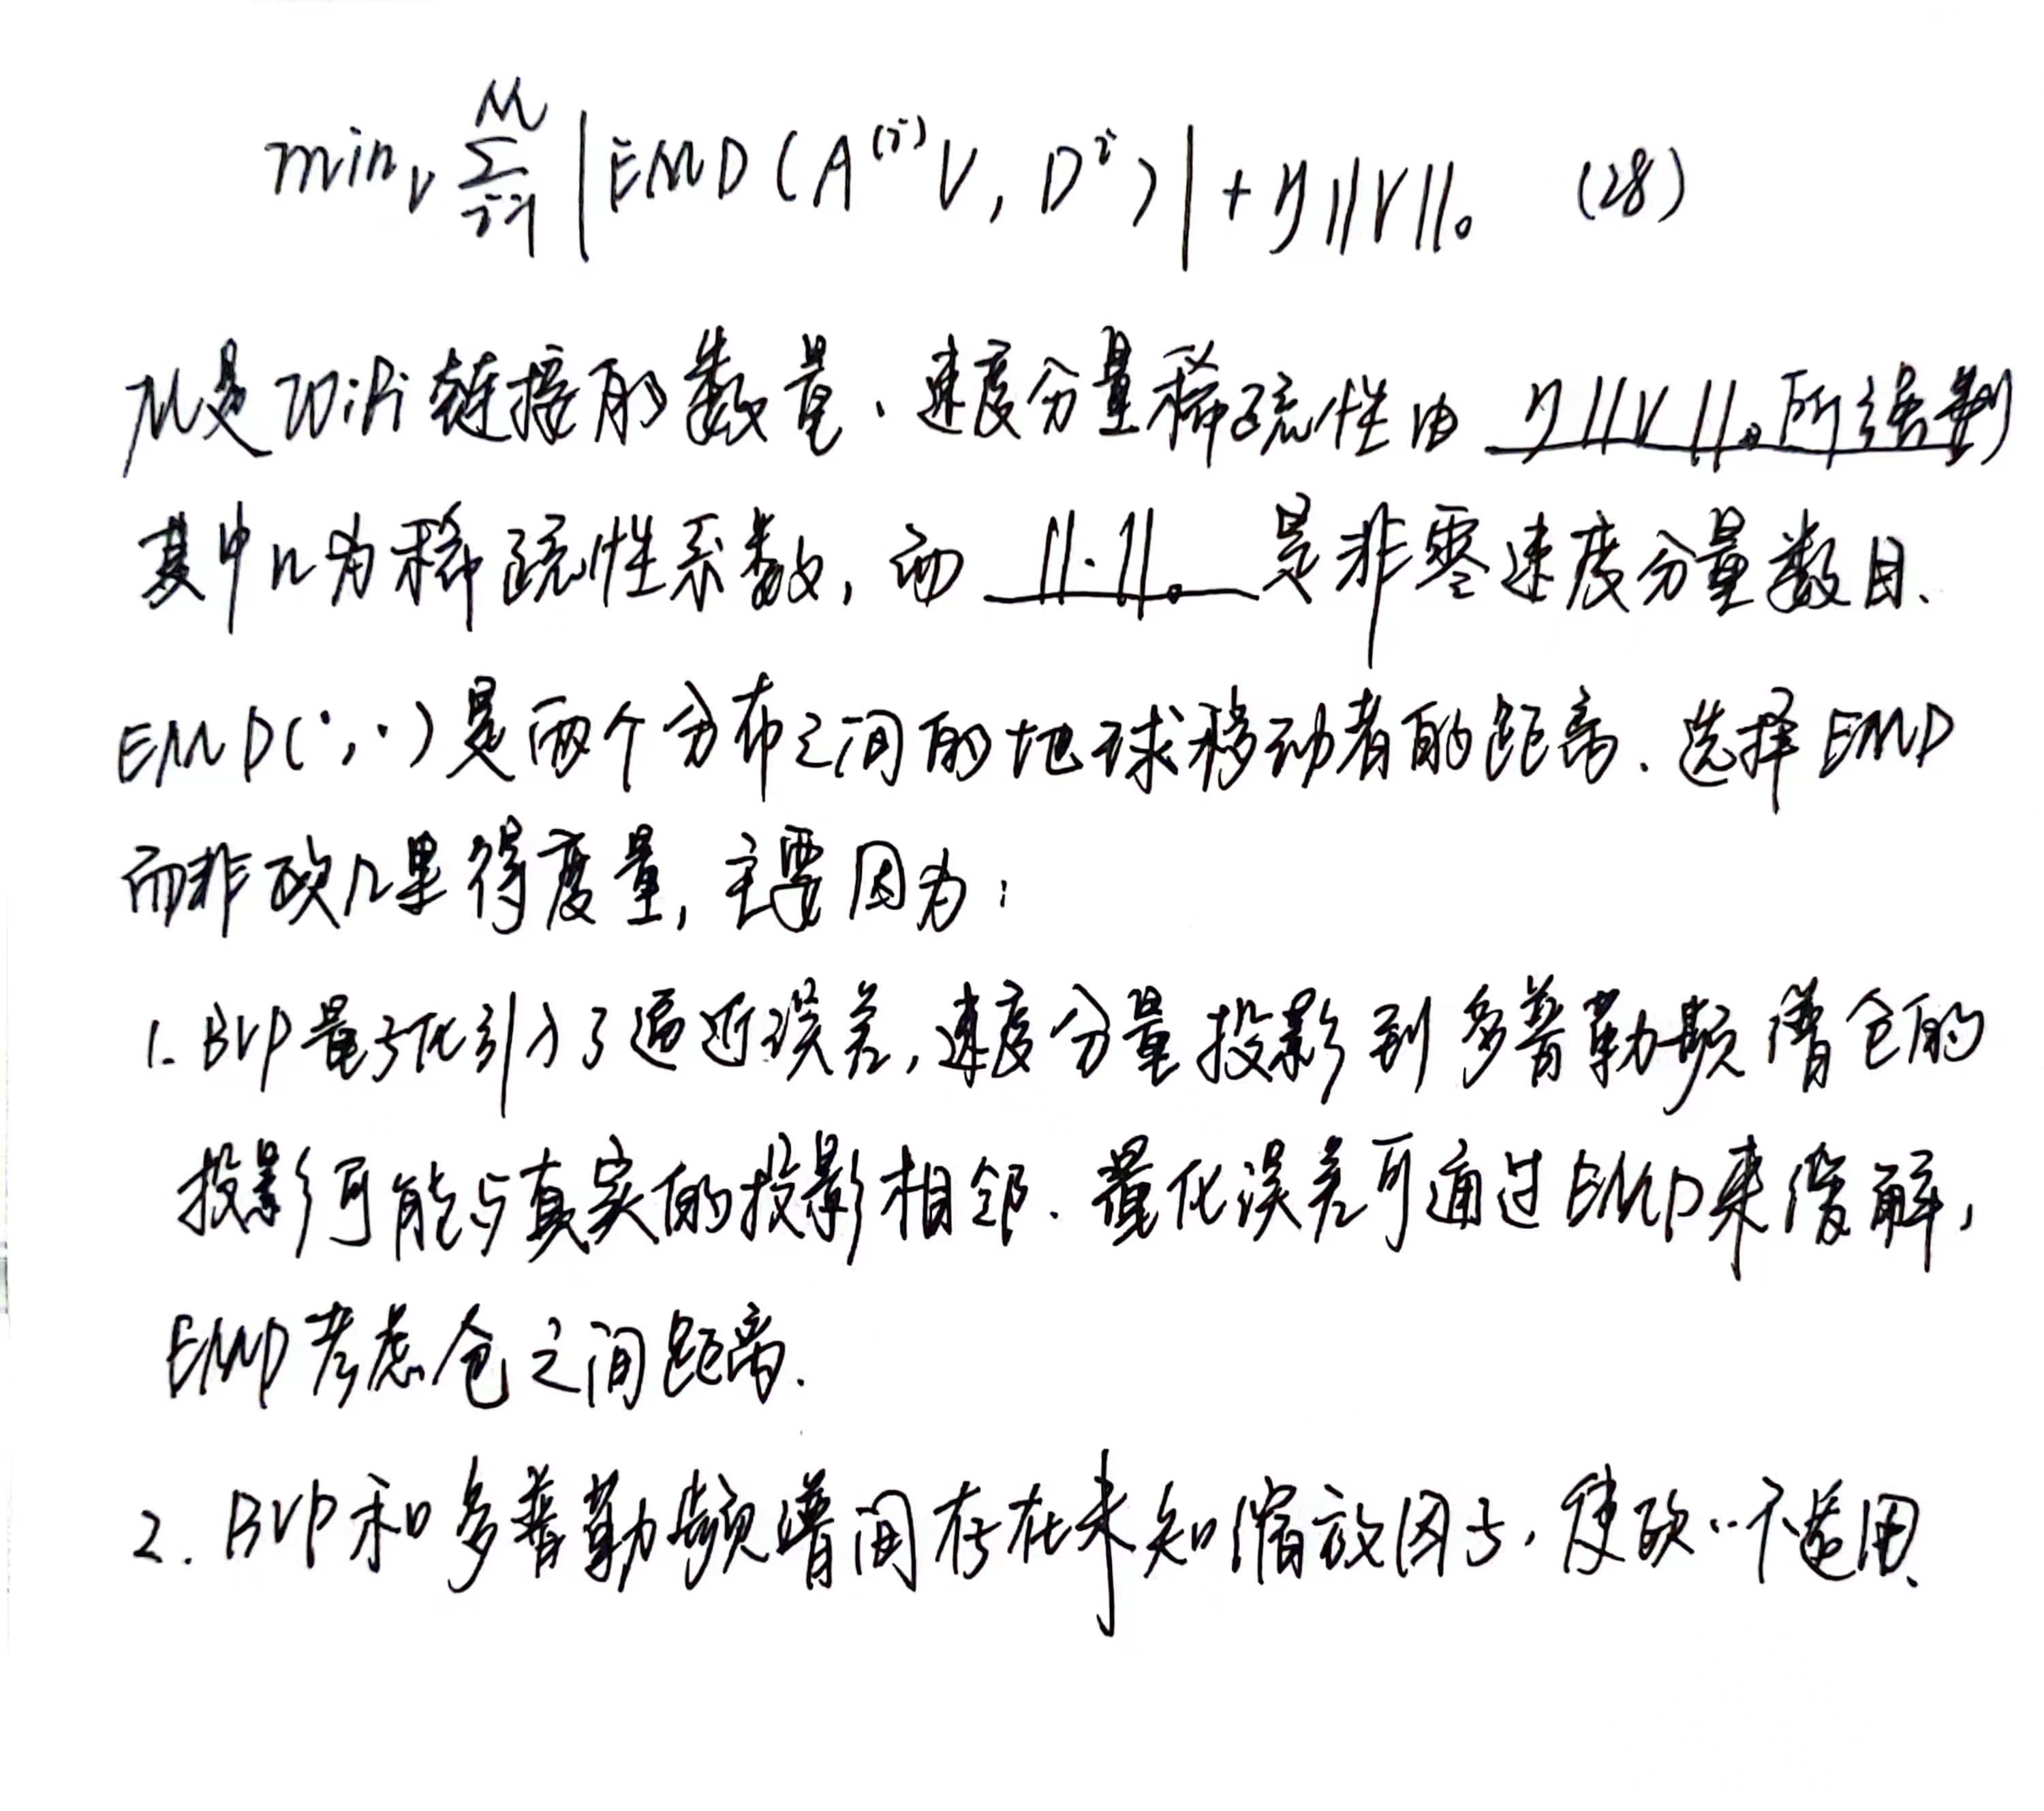 min_V Σ_{i=1}^{M} |EMD(A^{(i)}V, D^{i})| + η||V||₀ (28)
M是WiFi链接的数量、速度分量稀疏性由 η||V||₀所
其中n为稀疏性系数，而 ||·||₀ 是非零速度分量数目、
EMD(·,·)是两个分布之间的地球移动者的距离、选择EMD
而非欧几里得度量，主要因为：
1. BVP量子化引入了逼近误差，速度分量投影到多普勒频谱仓的
投影可能与真实的投影相邻、量化误差可通过EMD来缓解，
EMD考虑仓之间距离.
2. BVP和多普勒频谱间存在未知缩放因子，使欧··不适用、